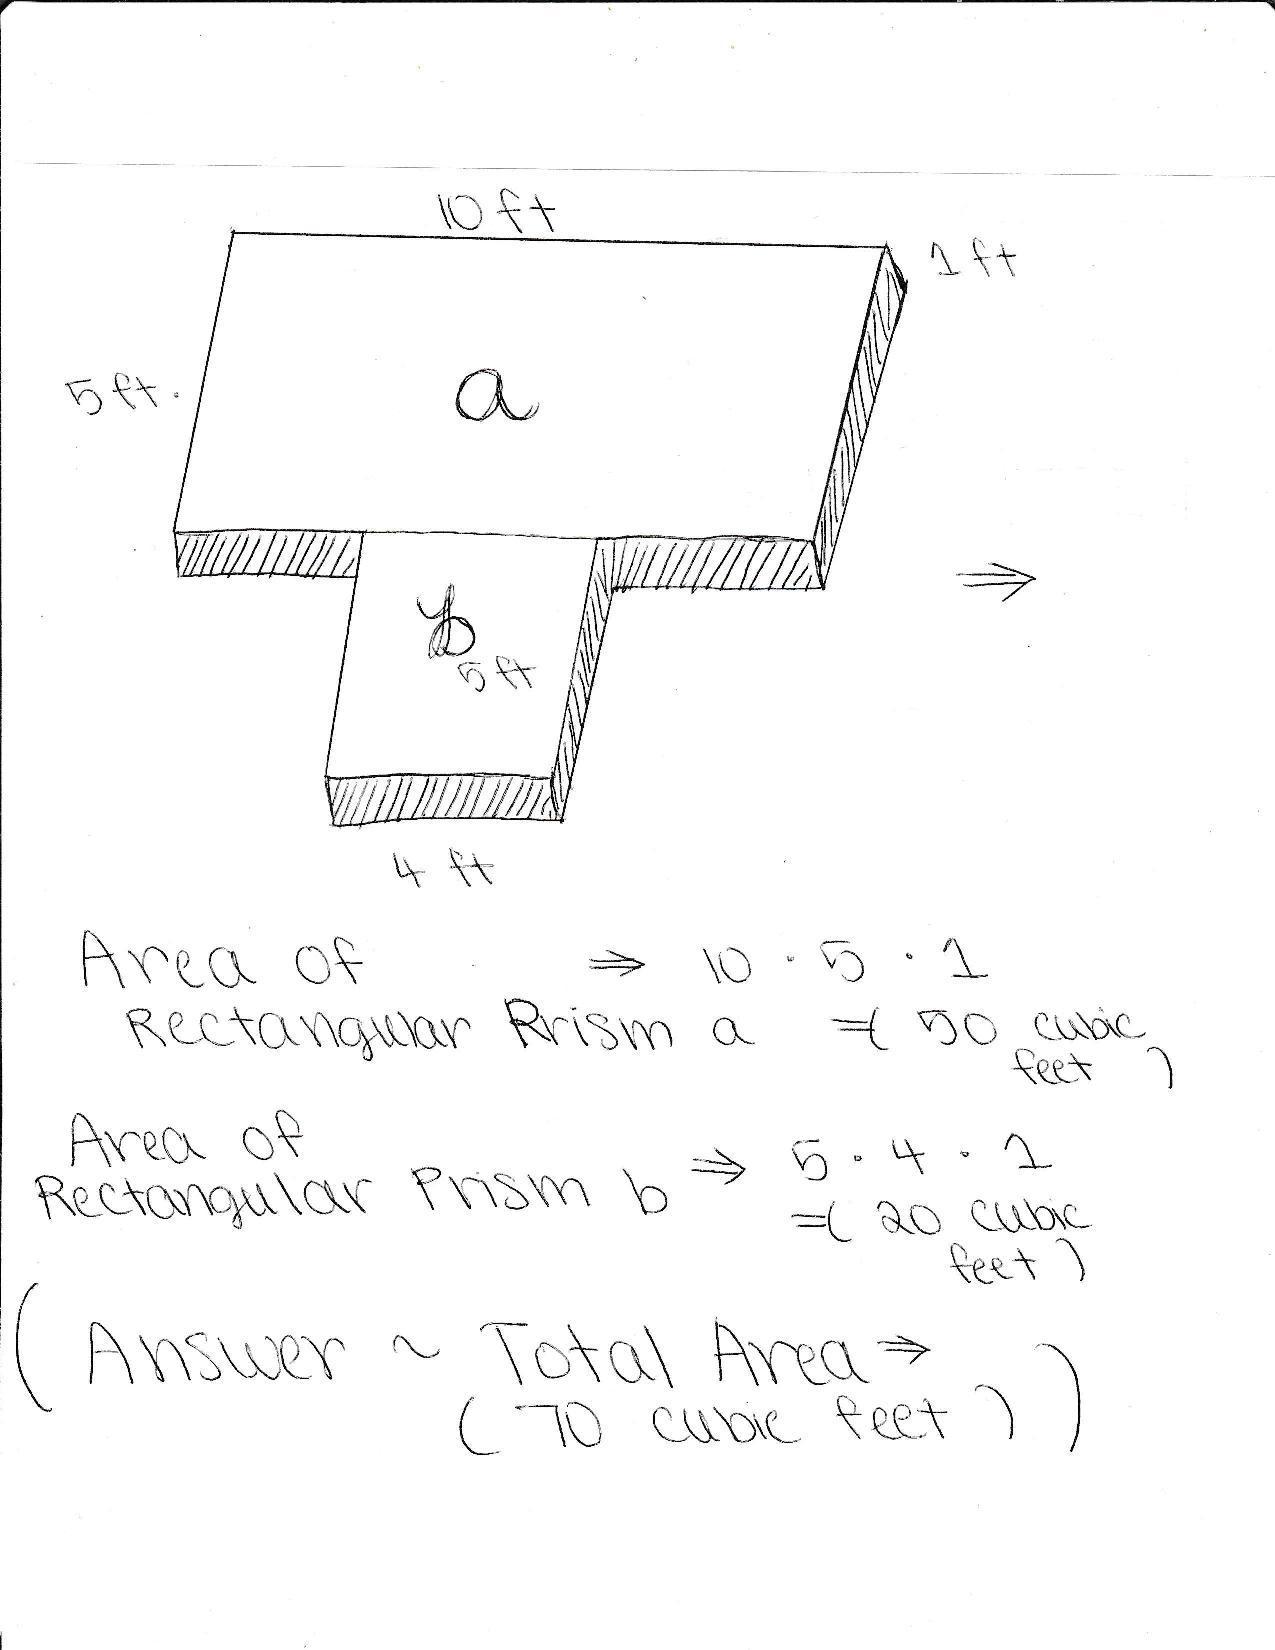 10 ft
1 ft
5 ft.
a
b
5 ft
⇒
4 ft
Area of ⇒ 10 · 5 · 1
Rectangular Rrism a =( 50 cubic
feet )
Area of
Rectangular Prism b ⇒ 5 · 4 · 1
=( 20 cubic
feet )
( Answer ~ Total Area ⇒
( 70 cubic feet ) )